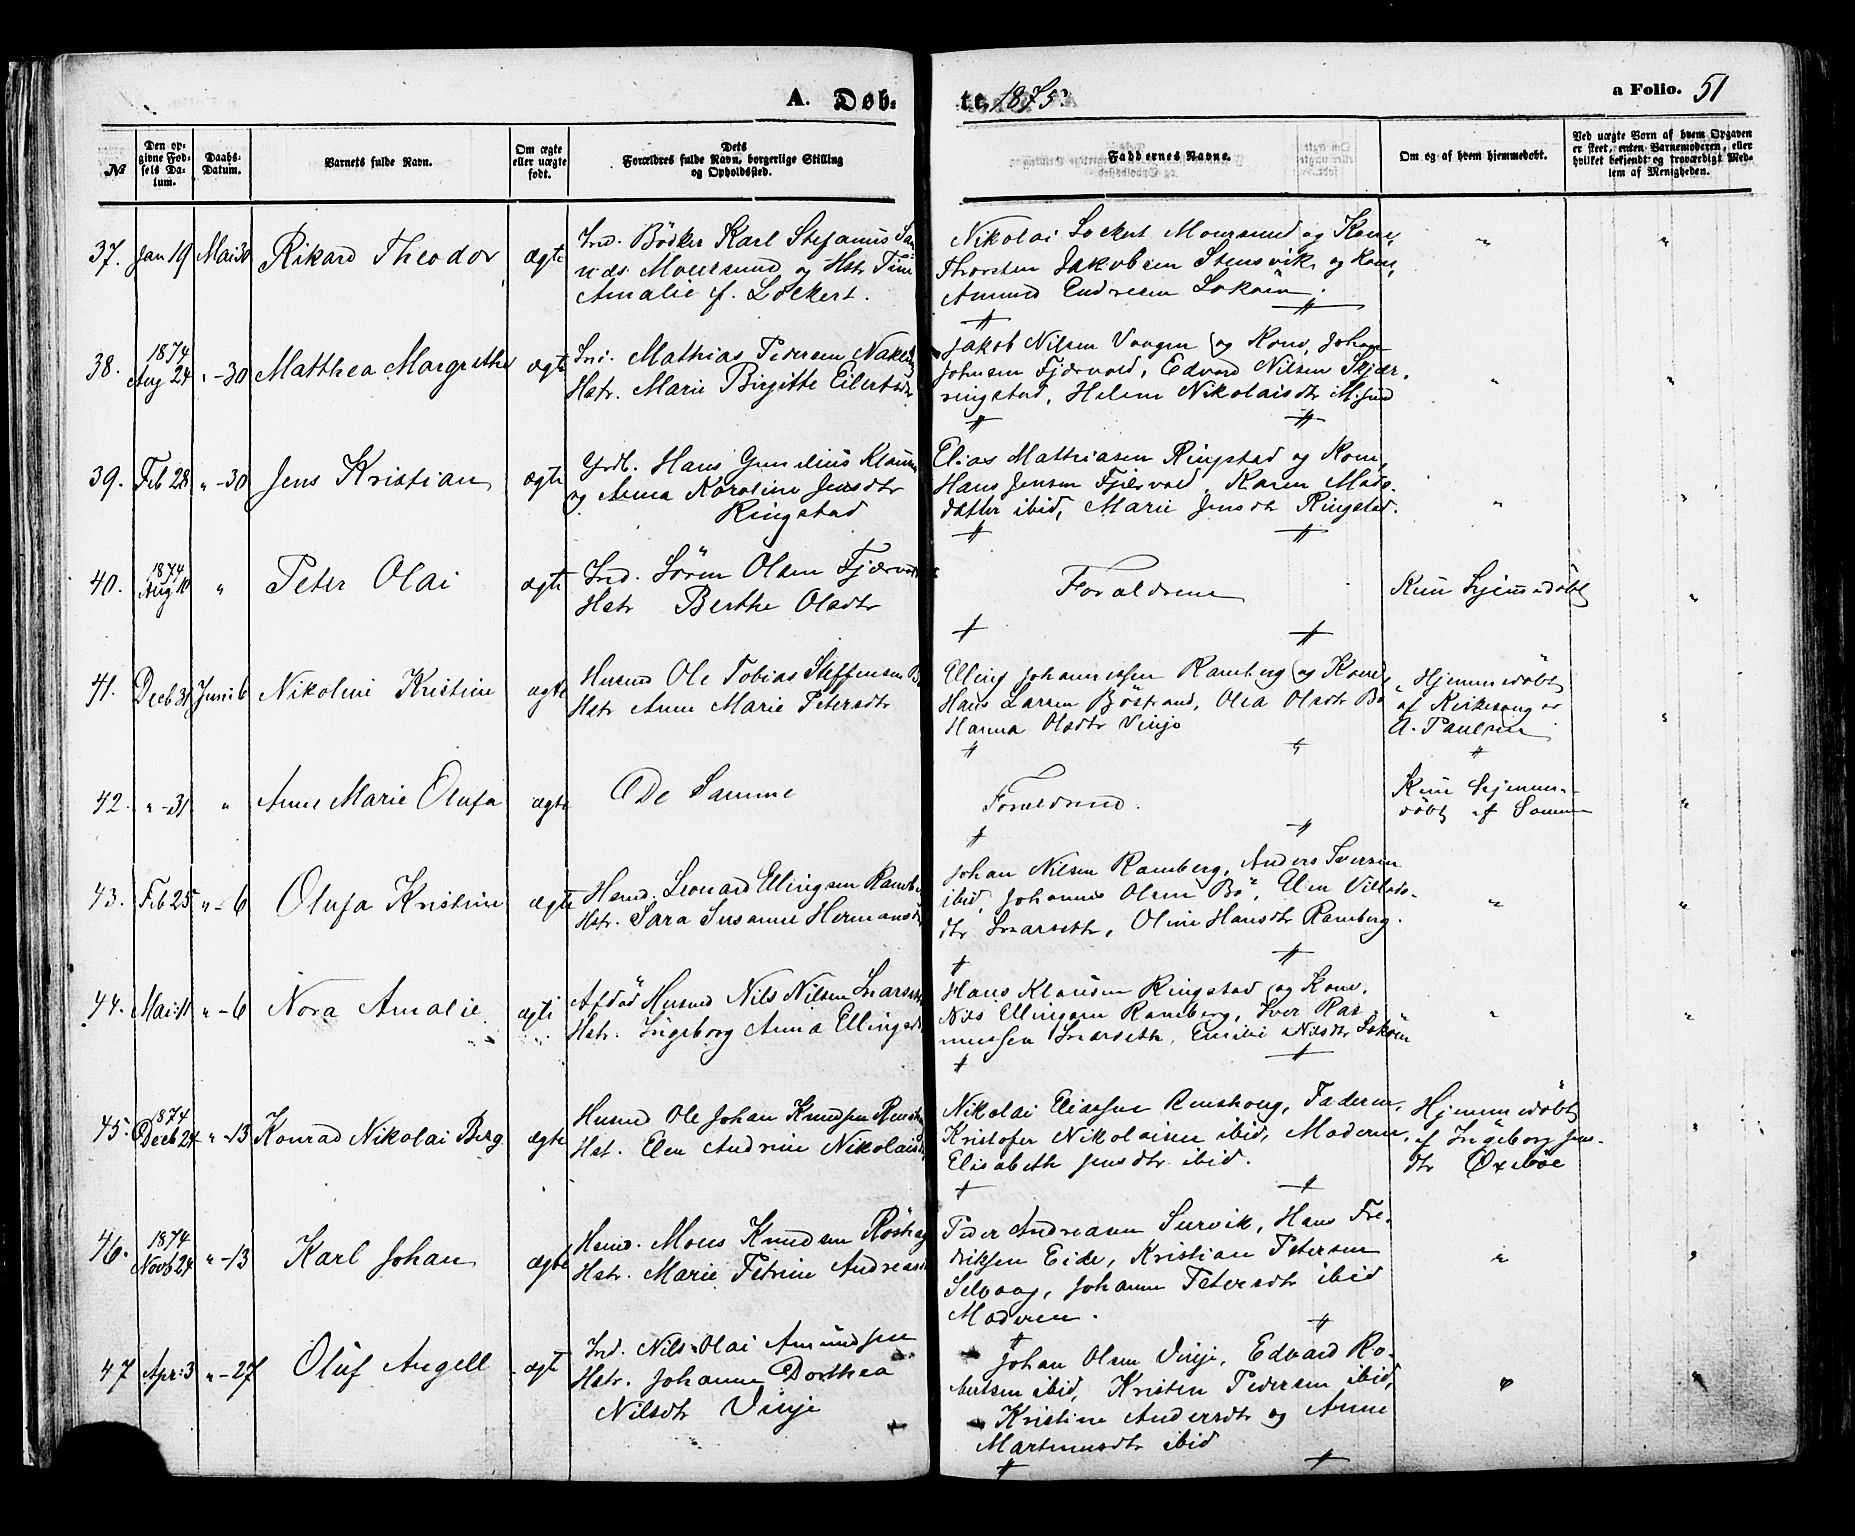 A. Døb-
te. 1875.
a Folio. 51
№
Den op-
givne Fød-
sels Da-
tum.
Daabs-
Datum.
Barnets fulde Navn.
Om ægte
eller uægte
født.
Dets
Forældres fulde Navn, borgerlige Stilling
og Opholdssted.
Faddernes Navne.
Om og af hvem hjemmedøbt.
Ved uægte Børn af hvem Opgaven
er skeet, enten Barnemoderen, eller
hvilket bekjendt og troværdigt Med-
lem af Menigheden.
37. Jan 19 Mai 30 Rikard Theodor ægte
Ind. Bödker Karl Stefanus
Moursund og Hstr
Amalie f. Lockert.
Nikolai Lockert Moursund og Kone,
Thorsten Jakobsen Stensvik og Kone,
Amund Endresen Loköen.
38. 1874 Aug 24 " -30 Matthea Margrethe ægte
Ind. Mathias Pedersen
Hstr. Marie Birgitte Eilertsdtr
Jakob Nilsen Vangen og Kone, Johan
Johnsen Fjærvold, Edvard Nilsen Skjær-
ringstad, Helene Nikolaisdtr M.sund
39. Feb 28 " -30 Jens Kristian ægte
Hans
og Anna Karoline Jensdtr
Ringstad
Elias Mathiasen Ringstad og Kone,
Hans Jensen Fjærvold, Karen Mads-
datter ibid, Marie Jensdtr Ringstad.
40. 1874 Aug 10 " Peter Olai ægte
Ind. Sören Olsen Fjærvold
Hstr Berthe Olsdtr
Forældrene
Kun hjemmedöbt
41. Decb 31 Juni 6 Nikoline Kristine ægte
Husmd Ole Tobias Steffensen
Hstr Anne Marie Petersdtr
Elling Johannessen Ramberg og Kone,
Hans Larsen Böstrand, Olea Olsdtr Bö
Hanna Olsdtr Vinje
Hjemmedöbt
af Kirkesanger
A. Paulsen
42. " -31 " Anne Marie Olufa ægte
De Samme
Forældrene.
Kun hjemme-
döbt af Samme
43. Feb 25 " -6 Olufa Kristine ægte
Husmd. Leonard Ellingsen Ramberg
Hstr. Sara Susanne Hermansdtr
Johan Nilsen Ramberg, Anders Iversen
ibid, Johannes Olsen Bö, Elen Villads-
dtr Snarseth, Oline Hansdtr Ramberg.
44. Mai 11 " -6 Nora Amalie ægte
Afdöd Husmd Nils Nilsen Snarseth
Hstr. Ingeborg Anna Ellingsdtr
Hans Klausen Ringstad og Kone,
Nils Ellingsen Ramberg, Iver Ras-
mussen Snarseth, Emilie Nilsdtr Loköen
45. 1874 Decb 24 " -13 Konrad Nikolai Berg ægte
Husmd Ole Johan Knudsen
Hst. Elen Andrine Nikolaisdtr
Nikolai Eliassen Renshoug, Faderen,
Kristofer Nikolaisen ibid, Moderen,
Elisabeth Jensdtr ibid.
Hjemmedöbt
af Ingeborg Jens-
dtr Oxebøe
46. 1874 Novb 24 " -13 Karl Johan ægte
Husmd. Mons Knudsen
Hstr. Marie Petrine Andreasdtr
Peder Andreasen Survik, Hans Fre-
driksen Eide, Kristian Petersen
Selvaag, Johanne Petersdtr ibid
Moderen.
47 Apr: 3 " -27 Oluf Angell ægte
Ind. Nils Olai Amundsen
Hstr. Johanne Dorthea
Nilsdtr Vinje
Johan Olsen Vinje, Edvard Ro-
bertsen ibid, Kristen Pedersen ibid,
Kristine Andersdtr og Anne
Martinusdtr ibid